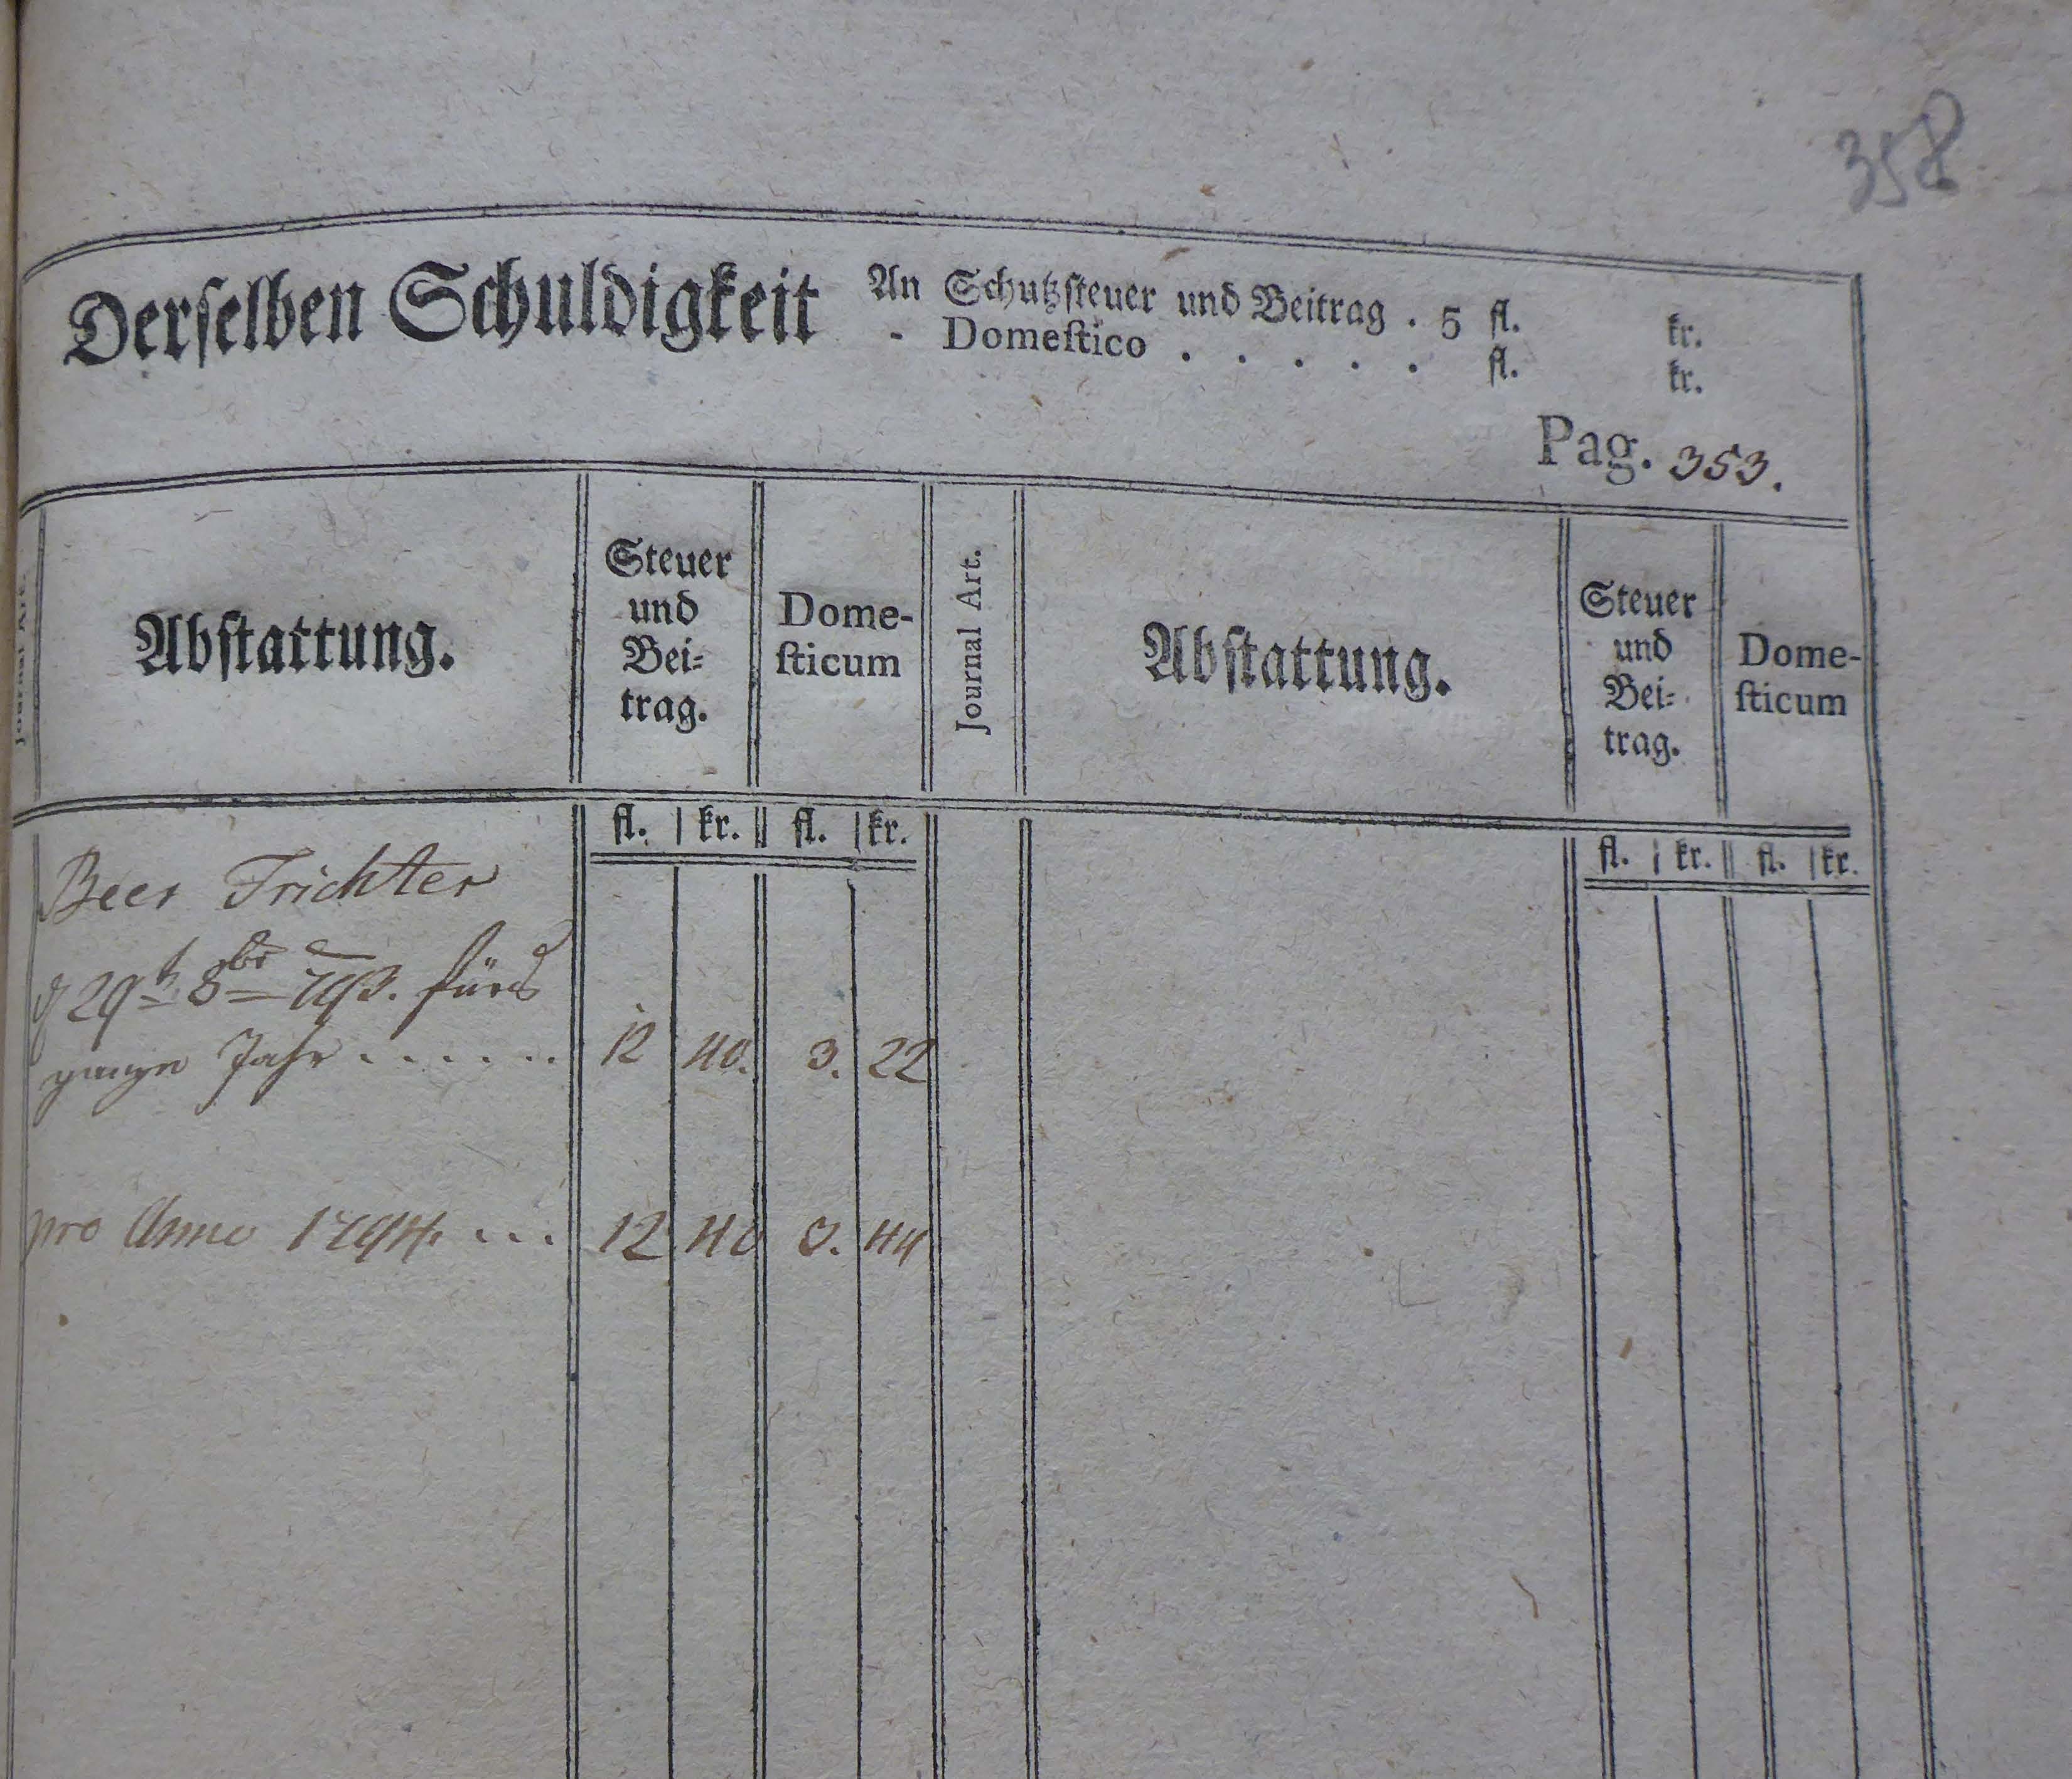 358
Derselben Schuldigkeit An Schutzsteuer und Beitrag . 5 fl. kr.
- Domestico . . . . . fl. kr.
Pag. 353.
Journal Art.
Abstattung.
Steuer
und
Bei=
trag.
Dome-
sticum
Journal Art.
Abstattung.
Steuer
und
Bei=
trag.
Dome-
sticum
fl. kr. fl. kr.
fl. kr. fl. kr.
Beer Trichter
29t 8br 793. fürs
ganze Jahr . . . . . . 12 40. 3. 22
pro Anno 1794. ... 12 40 3. 44